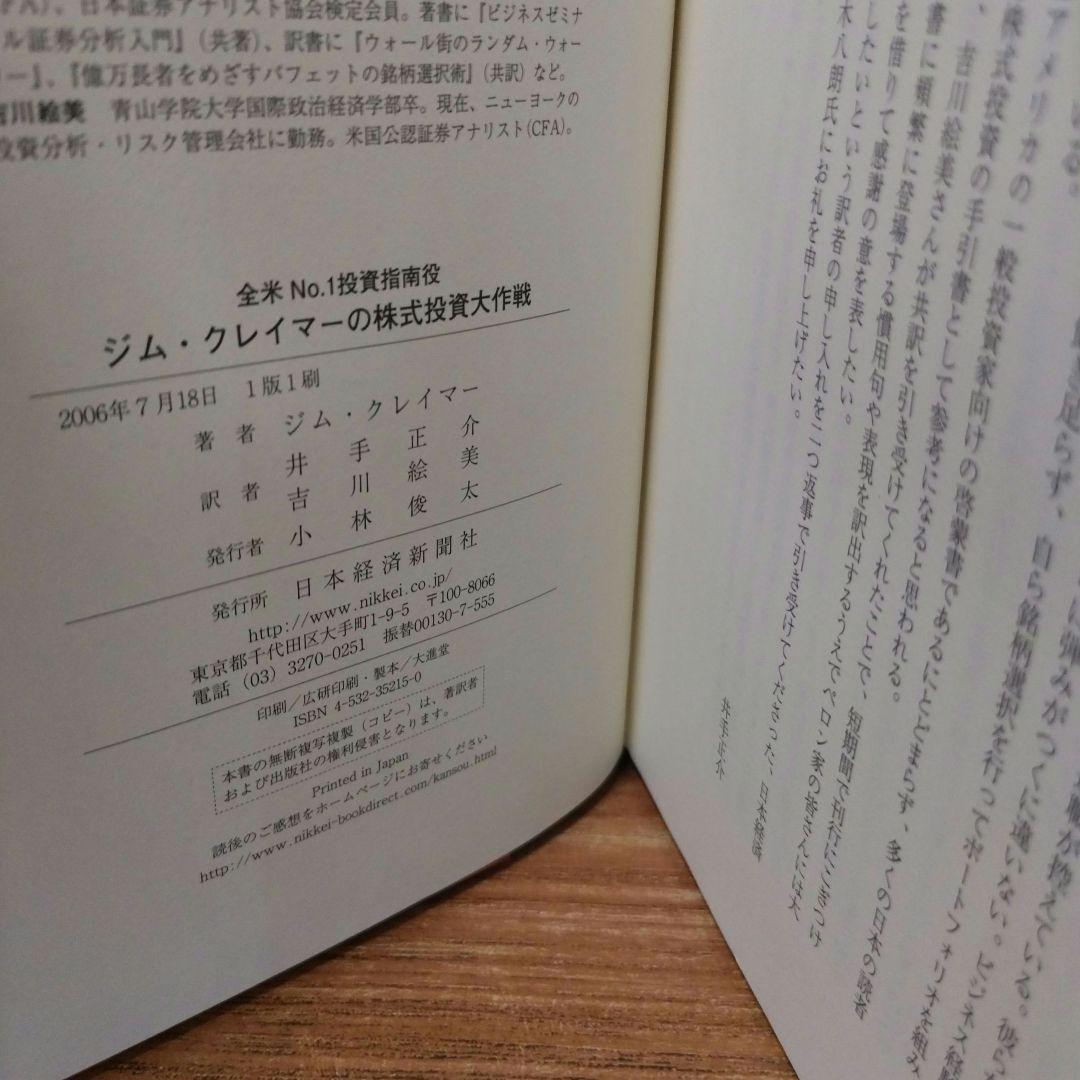 FA)、日本証券アナリスト協会検定会員。著書に『ビジネスゼミナ
ル証券分析入門』(共著)、訳書に『ウォール街のランダム・ウォー
ー』、『億万長者をめざすバフェットの銘柄選択術』(共訳)など。
吉川絵美 青山学院大学国際政治経済学部卒。現在、ニューヨークの
投資分析・リスク管理会社に勤務。米国公認証券アナリスト(CFA)。
全米 No.1投資指南役
ジム・クレイマーの株式投資大作戦
2006年7月18日 1版1刷
著者 ジム・クレイマー
井手正介
訳者 吉川絵美
発行者 小林俊太
発行所 日本経済新聞社
http://www.nikkei.co.jp/
東京都千代田区大手町1-9-5 〒100-8066
電話 (03) 3270-0251 振替00130-7-555
印刷/広研印刷・製本/大進堂
ISBN 4-532-35215-0
本書の無断複写複製(コピー)は、著訳者
および出版社の権利侵害となります。
Printed in Japan
読後のご感想をホームページにお寄せください
http://www.nikkei-bookdirect.com/kansou.html
足らず、自ら銘柄選択を行ってポートフォリオを組み
に弾みがつくに違いない。ビジネス経験
アメリカの一般投資家向けの啓蒙書であるにとどまらず、多くの日本の読者
株式投資の手引書として参考になると思われる。
、吉川絵美さんが共訳を引き受けてくれたことで、短期間で刊行にこぎつけ
書に頻繁に登場する慣用句や表現を訳出するうえでペロン家の皆さんには大
を借りて感謝の意を表したい。
したいという訳者の申し入れを二つ返事で引き受けてくださった、日本経済
木八朗氏にお礼を申し上げたい。
井手正介